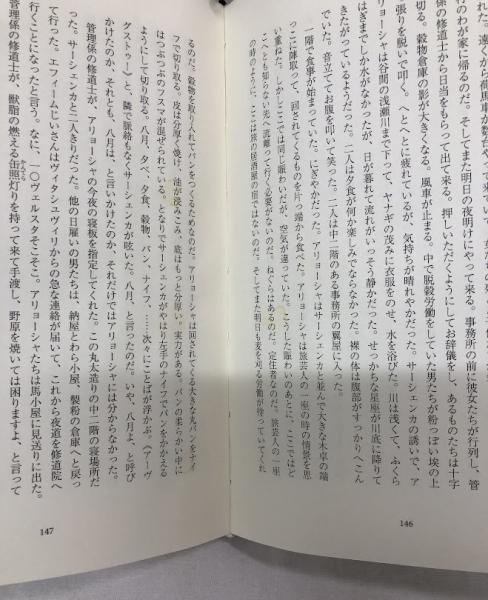 た。遠くから荷馬車が数台やって
行のわが家に帰るのだ。そしてまた明日の夜明けにやって来る。事務所の前に彼女たちが行列し、管
係の修道士から日当をもらって出て来る。押しいただくようにしてお辞儀をし、あるものたちは十字
切る。穀物倉庫の影が大きくなる。風車が止まる。中で脱穀労働をしていた男たちが粉っぽい埃の上
張りを脱いで叩く。へとへとに疲れているが、気持ちが晴れやかだった。サーシェンカの誘いで、ア
ーシャは谷間の浅瀬川まで下って、ヤナギの茂みに衣服をのせ、水を浴びた。川は浅くて、ふくら
はぎまでしか水がなかったが、日が暮れて流れがいっそう静かだった。せっかちな星座が川底に降りて
きたがっているようだった。二人は夕食が何か楽しみでならなかった。裸の体は腹部がすっかりへこん
でいた。音立ててお腹を叩いて笑った。二人は中二階のある事務所の翼屋に入った。
一階で食事が始まっていた。にぎやかだった。アリョーシャはサーシェンカと並んで大きな木卓の端
っこに陣取って、回されてくるものを片っ端から食べた。アリョーシャは旅芸人の一座の時の情景を思
い重ねた。しかしここでは同じ賑わいだが、空気が違っていた。こうした賑わいのあとに、ここではど
こへとも知らない先へ流離って行く必要がないのだ。ねぐらはあるのだ。定住者なのだ。旅芸人の一座
の時のように、ここは旅の居酒屋の宿ではないのだ。そしてまた明日も麦を刈る労働が待っていてくれ
146
るのだ。穀物を取り入れてパンをつくるためなのだ。アリョーシャは回されてくる大きな丸パンをナイ
フで切り取る。皮は分厚く焼け、油が浸みこみ、底はもっと分厚い。実力がある。パンの柔らかい中に
はつぶつぶのフスマが混ぜられている。となりでサーシェンカがやはり左手のナイフでパンをかかえる
ようにして切り取る。八月、夕べ、夕食、穀物、パン、ナイフ、……次々にことばが浮かぶ。〈アーヴ
グストゥー〉と、隣で脈絡もなくサーシェンカが呟いた。八月、と言ったのだ。いや、八月よ、と呼び
かけたのか、それとも、八月は、と言いかけたのか、それだけではアリョーシャには分からなかった。
管理係の修道士が、アリョーシャの今夜の寝板を指定してくれた。この丸太造りの中二階の寝場所だ
った。サーシェンカと二人きりだった。他の日雇いの男たちは、納屋とわら小屋、製粉の倉庫へと戻っ
て行った。エフィームじいさんはヴィタシュヴィリからの急な連絡が届いて、これから夜道を修道院へ
行くことになったと言う。なに、一〇ヴェルスタそこそこ。アリョーシャたちは馬小屋に見送りに出た。
管理係の修道士が、獣脂の燃える角燈灯りを持って来て手渡し、野原を焼いては困りますよ、と言って
147